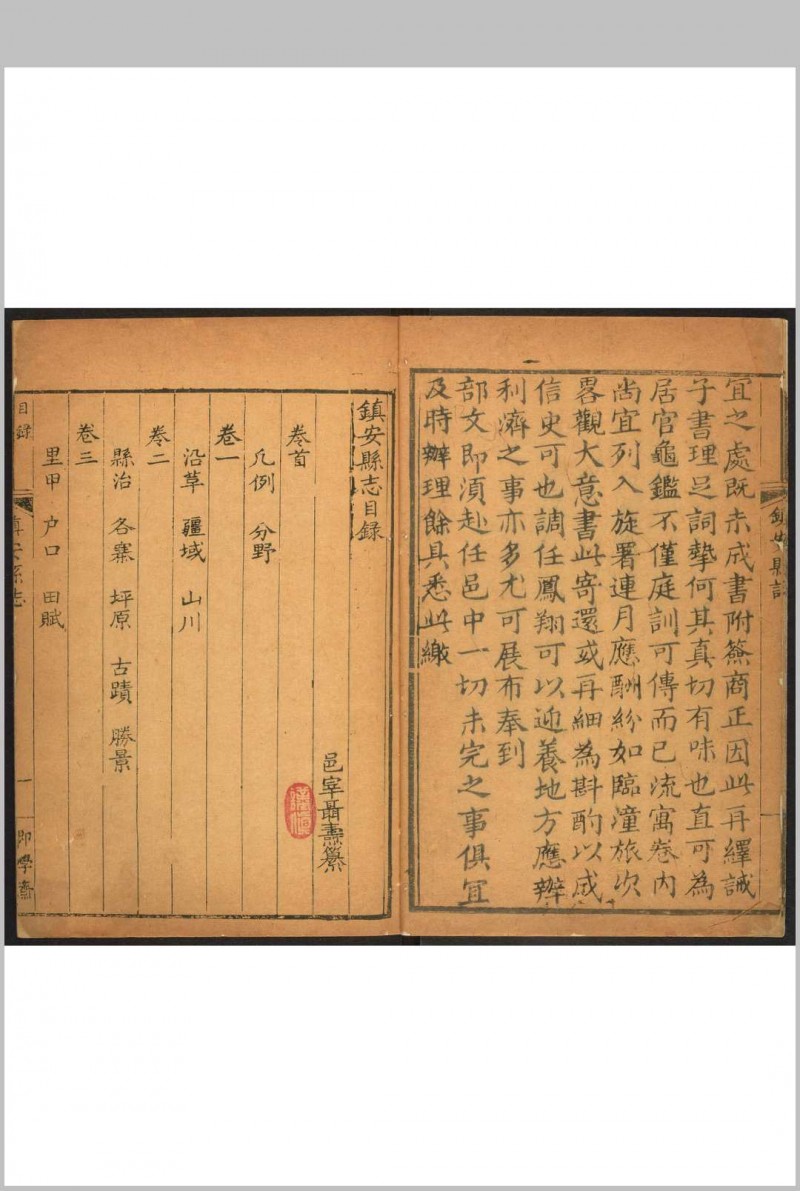 宜之處既未成書附簽商正因此再繹誡
子書理足詞摯何其真切有味也直可為
居官龜鑑不僅庭訓可傳而已流寓卷內
尚宜列入旋署連月應酬紛如臨潼旅次
畧觀大意書此寄還或再細為斟酌以成
信史可也調任鳳翔可以迎養地方應辦
利濟之事亦多尤可展布奉到
部文即須赴任邑中一切未完之事俱宜
及時辦理餘具悉此繳
鎮安縣志目録
邑宰聶燾纂
卷首
凡例 分野
卷一
沿革 疆域 山川
卷二
縣治 各寨 坪原 古蹟 勝景
卷三
里甲 户口 田賦
目録
鎮安縣志
一
即學齋